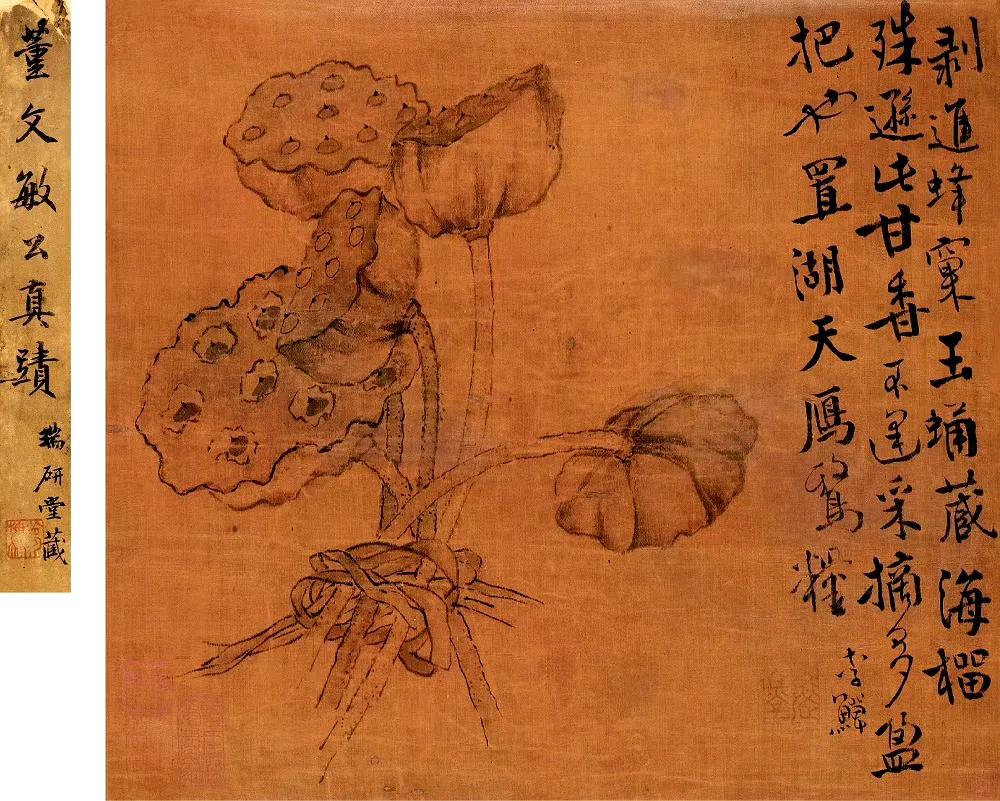 剥進蜂窠玉蛹藏海榴
殊遜此甘香不逢采摘多盈
把也置湖天鴈鶩糧
李鱓
董文敏公真蹟
瑞研堂藏